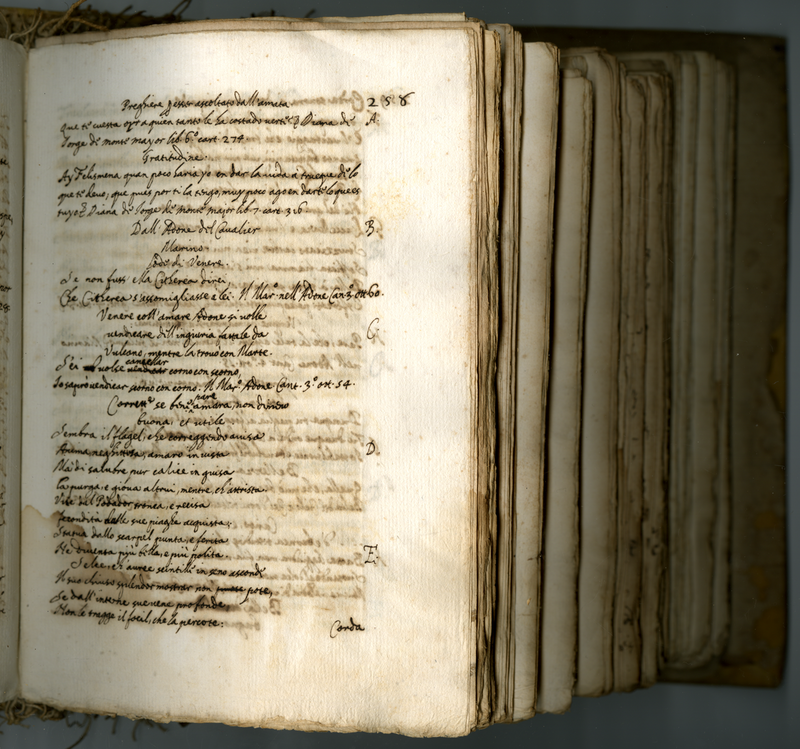 Preghiere per esser ascoltato dall'amata
258
que te cuesta oyr a quien tanto le ha costado verte? Diana de
A.
Jorge de monte mayor lib. 6.º cart. 274
Gratitudine.
Ay Felismena, quan poco haria yo en dar la vida a trueque de lo
que te devo, que pues por ti la tengo, muy poco ago en darte lo que es
tuyo? Diana de Jorge de Monte major lib 7. cart. 316
Dall'Adone del Cavalier
B.
Marino
Lode di Venere.
Se non fuss'ella Citherea direi
Che Citherea s'assomigliasse a lei. Il Mar.º nell'Adone Can. 3. ott. 60.
Venere coll'amare Adone si volle
vendicare dell'ingiuria fattale da
C.
Vulcano, mentre la trovò con Marte.
S'ei volse cancellar corno con scorno,
Io saprò vendicar scorno con corno. Il Mar.º Adone Cant. 3.º ott. 54.
Corrett.e se ben pare amara, non dimeno
buona, et utile
Sembra il flagel, che correggendo avisa
Anima neghittosa, amaro in vista
D.
Ma di salubre pur calice in guisa
La purga, e giova altrui, mentre ch'attrista.
Vite dal Potator, tronca, e recisa
Fecondità dalle sue piaghe acquista;
Statua dallo scarpel punta, e ferita
Ne diventa più bella, e più polita.
E.
Selce, ch'auree scintille in seno asconde
Il suo chiuso splendor mostrar non pote,
Se dall'interne sue vene profonde,
Non le tragge il focil, che la percote:
Corda